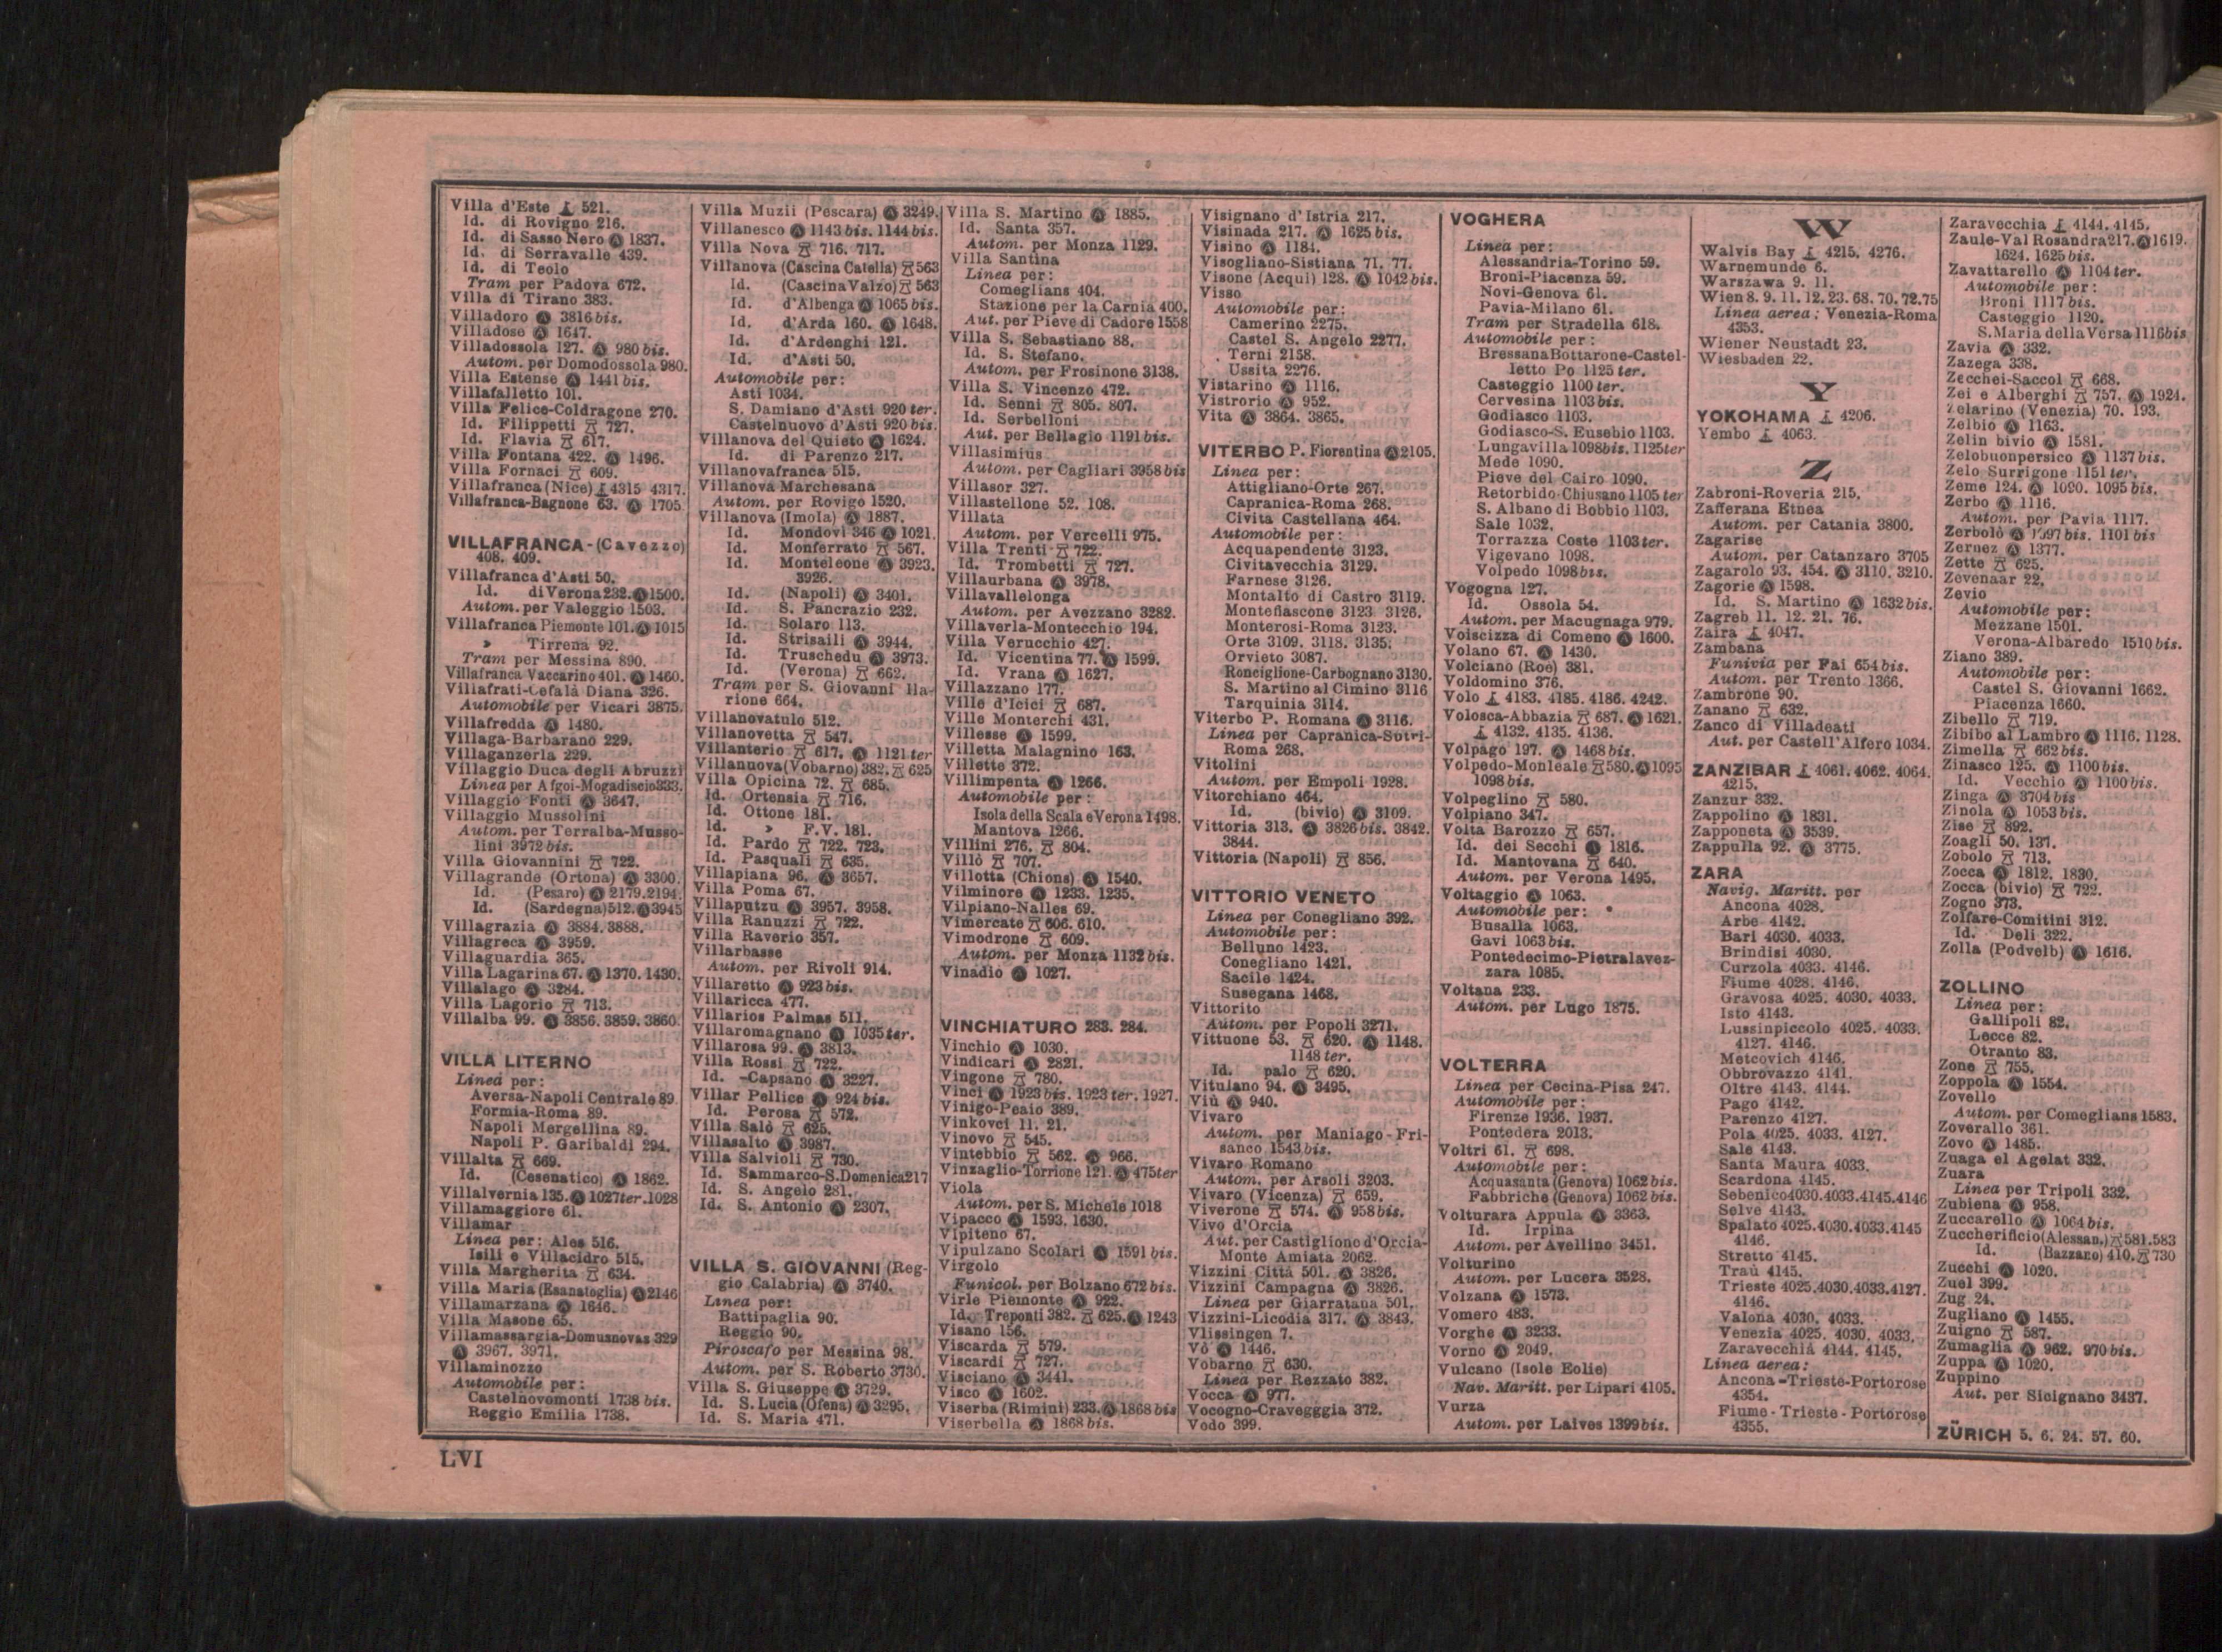 Villa d'Este 521.
Id. di Rovigno 216.
Id. di Sasso Nero Ⓐ 1837.
Id. di Serravalle 439.
Id. di Teolo
Tram per Padova 672.
Villa di Tirano 383.
Villadoro Ⓐ 3816 bis.
Villadose Ⓐ 1647.
Villadossola 127. Ⓐ 980 bis.
Autom. per Domodossola 980.
Villa Estense Ⓐ 1441 bis.
Villafalletto 101.
Villa Felice-Coldragone 270.
Id. Filippetti 727.
Id. Flavia 617.
Villa Fontana 422. Ⓐ 1496.
Villa Fornaci 609.
Villafranca (Nice) 4315 4317.
Villafranca-Bagnone 63. Ⓐ 1705.
VILLAFRANCA - (Cavezzo)
408. 409.
Villafranca d'Asti 50.
Id. di Verona 232. Ⓐ 1500.
Autom. per Valeggio 1503.
Villafranca Piemonte 101. Ⓐ 1015
» Tirrena 92.
Tram per Messina 890.
Villafranca Vaccarino 401. Ⓐ 1460.
Villafrati-Cefalà Diana 326.
Automobile per Vicari 3875.
Villafredda Ⓐ 1480.
Villaga-Barbarano 229.
Villaganzerla 229.
Villaggio Duca degli Abruzzi
Linea per Afgoi-Mogadiscio 333.
Villaggio Fonti Ⓐ 3647.
Villaggio Mussolini
Autom. per Terralba-Musso-
lini 3972 bis.
Villa Giovannini 722.
Villagrande (Ortona) Ⓐ 3300.
Id. (Pesaro) Ⓐ 2179. 2194.
Id. (Sardegna) 512. Ⓐ 3945
Villagrazia Ⓐ 3884. 3888.
Villagreca Ⓐ 3959.
Villaguardia 365.
Villa Lagarina 67. Ⓐ 1370. 1430.
Villalago Ⓐ 3284.
Villa Lagorio 713.
Villalba 99. Ⓐ 3856. 3859. 3860.
VILLA LITERNO
Linea per:
Aversa-Napoli Centrale 89.
Formia-Roma 89.
Napoli Mergellina 89.
Napoli P. Garibaldi 294.
Villalta 669.
Id. (Cesenatico) Ⓐ 1862.
Villalvernia 135. Ⓐ 1027 ter. 1028
Villamaggiore 61.
Villamar
Linea per: Ales 516.
Isili e Villacidro 515.
Villa Margherita 634.
Villa Maria (Esanatoglia) Ⓐ 2146
Villamarzana Ⓐ 1646.
Villa Masone 65.
Villamassargia-Domusnovas 329
Ⓐ 3967. 3971.
Villaminozzo
Automobile per:
Castelnovomonti 1738 bis.
Reggio Emilia 1738.
Villa Muzii (Pescara) Ⓐ 3249.
Villanesco Ⓐ 1143 bis. 1144 bis.
Villa Nova 716. 717.
Villanova (Cascina Catella) 563
Id. (Cascina Valzo) 563
Id. d'Albenga Ⓐ 1065 bis.
Id. d'Arda 160. Ⓐ 1648.
Id. d'Ardenghi 121.
Id. d'Asti 50.
Automobile per:
Asti 1034.
S. Damiano d'Asti 920 ter.
Castelnuovo d'Asti 920 bis.
Villanova del Quieto Ⓐ 1624.
Id. di Parenzo 217.
Villanovafranca 515.
Villanova Marchesana
Autom. per Rovigo 1520.
Villanova (Imola) Ⓐ 1887.
Id. Mondovì 346 Ⓐ 1021.
Id. Monferrato 567.
Id. Monteleone Ⓐ 3923.
3926.
Id. (Napoli) Ⓐ 3401.
Id. S. Pancrazio 232.
Id. Solaro 113.
Id. Strisaili Ⓐ 3944.
Id. Truschedu Ⓐ 3973.
Id. (Verona) 662.
Tram per S. Giovanni Ila-
rione 664.
Villanovatulo 512.
Villanovetta 547.
Villanterio 617. Ⓐ 1121 ter
Villanuova (Vobarno) 382. 625
Villa Opicina 72. 685.
Id. Ortensia 716.
Id. Ottone 181.
Id. » F.V. 181.
Id. Pardo 722. 723.
Id. Pasquali 635.
Villapiana 96. Ⓐ 3657.
Villa Poma 67.
Villaputzu Ⓐ 3957. 3958.
Villa Ranuzzi 722.
Villa Raverio 357.
Villarbasse
Autom. per Rivoli 914.
Villaretto Ⓐ 923 bis.
Villaricca 477.
Villarios Palmas 511.
Villaromagnano Ⓐ 1035 ter.
Villarosa 99. Ⓐ 3813.
Villa Rossi 722.
Id. -Capsano Ⓐ 3227.
Villar Pellice Ⓐ 924 bis.
Id. Perosa 572.
Villa Salò 625.
Villasalto Ⓐ 3987.
Villa Salvioli 730.
Id. Sammarco-S. Domenica 217
Id. S. Angelo 281.
Id. S. Antonio Ⓐ 2307.
VILLA S. GIOVANNI (Reg-
gio Calabria) Ⓐ 3740.
Linea per:
Battipaglia 90.
Reggio 90.
Piroscafo per Messina 98.
Autom. per S. Roberto 3730.
Villa S. Giuseppe Ⓐ 3729.
Id. S. Lucia (Ofena) Ⓐ 3295.
Id. S. Maria 471.
Villa S. Martino Ⓐ 1885.
Id. Santa 357.
Autom. per Monza 1129.
Villa Santina
Linea per:
Comeglians 404.
Stazione per la Carnia 400.
Aut. per Pieve di Cadore 1558
Villa S. Sebastiano 88.
Id. S. Stefano.
Autom. per Frosinone 3138.
Villa S. Vincenzo 472.
Id. Senni 805. 807.
Id. Serbelloni
Aut. per Bellagio 1191 bis.
Villasimius
Autom. per Cagliari 3958 bis
Villasor 327.
Villastellone 52. 108.
Villata
Autom. per Vercelli 975.
Villa Trenti 722.
Id. Trombetti 727.
Villaurbana Ⓐ 3978.
Villavallelonga
Autom. per Avezzano 3282.
Villaverla-Montecchio 194.
Villa Verucchio 427.
Id. Vicentina 77. Ⓐ 1599.
Id. Vrana Ⓐ 1627.
Villazzano 177.
Ville d'Icici 687.
Ville Monterchi 431.
Villesse Ⓐ 1599.
Villetta Malagnino 163.
Villette 372.
Villimpenta Ⓐ 1266.
Automobile per:
Isola della Scala e Verona 1498.
Mantova 1266.
Villini 276. 804.
Villò 707.
Villotta (Chions) Ⓐ 1540.
Vilminore Ⓐ 1233. 1235.
Vilpiano-Nalles 69.
Vimercate 606. 610.
Vimodrone 609.
Autom. per Monza 1132 bis.
Vinadio Ⓐ 1027.
VINCHIATURO 283. 284.
Vinchio Ⓐ 1030.
Vindicari Ⓐ 2821.
Vingone 780.
Vinci Ⓐ 1923 bis. 1923 ter. 1927.
Vinigo-Peaio 389.
Vinkovci 11. 21.
Vinovo 545.
Vintebbio 562. Ⓐ 966.
Vinzaglio-Torrione 121. Ⓐ 475 ter
Viola
Autom. per S. Michele 1018
Vipacco Ⓐ 1593. 1630.
Vipiteno 67.
Vipulzano Scolari Ⓐ 1591 bis.
Virgolo
Funicol. per Bolzano 672 bis.
Virle Piemonte Ⓐ 922.
Id. Treponti 382. 625. Ⓐ 1243
Visano 156.
Viscarda 579.
Viscardi 727.
Visciano Ⓐ 3441.
Visco Ⓐ 1602.
Viserba (Rimini) 233. Ⓐ 1868 bis
Viserbella Ⓐ 1868 bis.
Visignano d'Istria 217.
Visinada 217. Ⓐ 1625 bis.
Visino Ⓐ 1184.
Visogliano-Sistiana 71. 77.
Visone (Acqui) 128. Ⓐ 1042 bis.
Visso
Automobile per:
Camerino 2275.
Castel S. Angelo 2277.
Terni 2158.
Ussita 2276.
Vistarino Ⓐ 1116.
Vistrorio Ⓐ 952.
Vita Ⓐ 3864. 3865.
VITERBO P. Fiorentina Ⓐ 2105.
Linea per:
Attigliano-Orte 267.
Capranica-Roma 268.
Civita Castellana 464.
Automobile per:
Acquapendente 3123.
Civitavecchia 3129.
Farnese 3126.
Montalto di Castro 3119.
Montefiascone 3123 3126.
Monterosi-Roma 3123.
Orte 3109. 3118. 3135.
Orvieto 3087.
Ronciglione-Carbognano 3130.
S. Martino al Cimino 3116
Tarquinia 3114.
Viterbo P. Romana Ⓐ 3116.
Linea per Capranica-Sutri-
Roma 268.
Vitolini
Autom. per Empoli 1928.
Vitorchiano 464.
Id. (bivio) Ⓐ 3109.
Vittoria 313. Ⓐ 3826 bis. 3842.
3844.
Vittoria (Napoli) 856.
VITTORIO VENETO
Linea per Conegliano 392.
Automobile per:
Belluno 1423.
Conegliano 1421.
Sacile 1424.
Susegana 1468.
Vittorito
Autom. per Popoli 3271.
Vittuone 53. 620. Ⓐ 1148.
1148 ter.
Id. palo 620.
Vitulano 94. Ⓐ 3495.
Viù Ⓐ 940.
Vivaro
Autom. per Maniago-Fri-
sanco 1543 bis.
Vivaro Romano
Autom. per Arsoli 3203.
Vivaro (Vicenza) 659.
Viverone 574. Ⓐ 958 bis.
Vivo d'Orcia
Aut. per Castiglione d'Orcia-
Monte Amiata 2062.
Vizzini Città 501. Ⓐ 3826.
Vizzini Campagna Ⓐ 3826.
Linea per Giarratana 501.
Vizzini-Licodia 317. Ⓐ 3843.
Vlissingen 7.
Vò Ⓐ 1446.
Vobarno 630.
Linea per Rezzato 382.
Vocca Ⓐ 977.
Vocogno-Cravegggia 372.
Vodo 399.
VOGHERA
Linea per:
Alessandria-Torino 59.
Broni-Piacenza 59.
Novi-Genova 61.
Pavia-Milano 61.
Tram per Stradella 618.
Automobile per:
Bressana Bottarone-Castel-
letto Po 1125 ter.
Casteggio 1100 ter.
Cervesina 1103 bis.
Godiasco 1103.
Godiasco-S. Eusebio 1103.
Lungavilla 1098 bis. 1125 ter
Mede 1090.
Pieve del Cairo 1090.
Retorbido-Chiusano 1105 ter
S. Albano di Bobbio 1103.
Sale 1032.
Torrazza Coste 1103 ter.
Vigevano 1098.
Volpedo 1098 bis.
Vogogna 127.
Id. Ossola 54.
Autom. per Macugnaga 979.
Voiscizza di Comeno Ⓐ 1600.
Volano 67. Ⓐ 1430.
Volciano (Roè) 381.
Voldomino 376.
Volo 4183. 4185. 4186. 4242.
Volosca-Abbazia 687. Ⓐ 1621.
4132. 4135. 4136.
Volpago 197. Ⓐ 1468 bis.
Volpedo-Monleale 580. Ⓐ 1095
1098 bis.
Volpeglino 580.
Volpiano 347.
Volta Barozzo 657.
Id. dei Secchi Ⓐ 1816.
Id. Mantovana 640.
Autom. per Verona 1495.
Voltaggio Ⓐ 1063.
Automobile per:
Busalla 1063.
Gavi 1063 bis.
Pontedecimo-Pietralavez-
zara 1085.
Voltana 233.
Autom. per Lugo 1875.
VOLTERRA
Linea per Cecina-Pisa 247.
Automobile per:
Firenze 1936. 1937.
Pontedera 2013.
Voltri 61. 698.
Automobile per:
Acquasanta (Genova) 1062 bis.
Fabbriche (Genova) 1062 bis.
Volturara Appula Ⓐ 3363.
Id. Irpina
Autom. per Avellino 3451.
Volturino
Autom. per Lucera 3528.
Volzana Ⓐ 1573.
Vomero 483.
Vorghe Ⓐ 3233.
Vorno Ⓐ 2049.
Vulcano (Isole Eolie)
Nav. Maritt. per Lipari 4105.
Vurza
Autom. per Laives 1399 bis.
W
Walvis Bay 4215. 4276.
Warnemunde 6.
Warszawa 9. 11.
Wien 8. 9. 11. 12. 23. 68. 70. 72. 75
Linea aerea: Venezia-Roma
4353.
Wiener Neustadt 23.
Wiesbaden 22.
Y
YOKOHAMA 4206.
Yembo 4063.
Z
Zabroni-Roveria 215.
Zafferana Etnea
Autom. per Catania 3800.
Zagarise
Autom. per Catanzaro 3705
Zagarolo 93. 454. Ⓐ 3110. 3210.
Zagorie Ⓐ 1598.
Id. S. Martino Ⓐ 1632 bis.
Zagreb 11. 12. 21. 76.
Zaira 4047.
Zambana
Funivia per Fai 654 bis.
Autom. per Trento 1366.
Zambrone 90.
Zanano 632.
Zanco di Villadeati
Aut. per Castell'Alfero 1034.
ZANZIBAR 4061. 4062. 4064.
4215.
Zanzur 332.
Zappolino Ⓐ 1831.
Zapponeta Ⓐ 3539.
Zappulla 92. Ⓐ 3775.
ZARA
Navig. Maritt. per
Ancona 4028.
Arbe 4142.
Bari 4030. 4033.
Brindisi 4030.
Curzola 4033. 4146.
Fiume 4028. 4146.
Gravosa 4025. 4030. 4033.
Isto 4143.
Lussinpiccolo 4025. 4033.
4127. 4146.
Metcovich 4146.
Obbrovazzo 4141.
Oltre 4143. 4144.
Pago 4142.
Parenzo 4127.
Pola 4025. 4033. 4127.
Sale 4143.
Santa Maura 4033.
Scardona 4145.
Sebenico 4030. 4033. 4145. 4146
Selve 4143.
Spalato 4025. 4030. 4033. 4145
4146.
Stretto 4145.
Traù 4145.
Trieste 4025. 4030. 4033. 4127.
4146.
Valona 4030. 4033.
Venezia 4025. 4030. 4033.
Zaravecchià 4144. 4145.
Linea aerea:
Ancona-Trieste-Portorose
4354.
Fiume-Trieste-Portorose
4355.
Zaravecchia 4144. 4145.
Zaule-Val Rosandra 217. Ⓐ 1619.
1624. 1625 bis.
Zavattarello Ⓐ 1104 ter.
Automobile per:
Broni 1117 bis.
Casteggio 1120.
S. Maria della Versa 1116 bis
Zavia Ⓐ 332.
Zazega 338.
Zecchei-Saccol 668.
Zei e Alberghi 757. Ⓐ 1924.
Zelarino (Venezia) 70. 193.
Zelbio Ⓐ 1163.
Zelin bivio Ⓐ 1581.
Zelobuonpersico Ⓐ 1137 bis.
Zelo Surrigone 1151 ter.
Zeme 124. Ⓐ 1090. 1095 bis.
Zerbo Ⓐ 1116.
Autom. per Pavia 1117.
Zerbolò Ⓐ 1097 bis. 1101 bis
Zernez Ⓐ 1377.
Zette 625.
Zevenaar 22.
Zevio
Automobile per:
Mezzane 1501.
Verona-Albaredo 1510 bis.
Ziano 389.
Automobile per:
Castel S. Giovanni 1662.
Piacenza 1660.
Zibello 719.
Zibibo al Lambro Ⓐ 1116. 1128.
Zimella 662 bis.
Zinasco 125. Ⓐ 1100 bis.
Id. Vecchio Ⓐ 1100 bis.
Zinga Ⓐ 3704 bis
Zinola Ⓐ 1053 bis.
Zise 892.
Zoagli 50. 137.
Zobolo 713.
Zocca Ⓐ 1812. 1830.
Zocca (bivio) 722.
Zogno 373.
Zolfare-Comitini 312.
Id. Deli 322.
Zolla (Podvelb) Ⓐ 1616.
ZOLLINO
Linea per:
Gallipoli 82.
Lecce 82.
Otranto 83.
Zone 755.
Zoppola Ⓐ 1554.
Zovello
Autom. per Comeglians 1583.
Zoverallo 361.
Zovo Ⓐ 1485.
Zuaga el Agelat 332.
Zuara
Linea per Tripoli 332.
Zubiena Ⓐ 958.
Zuccarello Ⓐ 1064 bis.
Zuccherificio (Alessan.) 581. 583
Id. (Bazzano) 410. 730
Zucchi Ⓐ 1020.
Zuel 399.
Zug 24.
Zugliano Ⓐ 1455.
Zuigno 587.
Zumaglia Ⓐ 962. 970 bis.
Zuppa Ⓐ 1020.
Zuppino
Aut. per Sicignano 3437.
ZÜRICH 5. 6. 24. 57. 60.
LVI